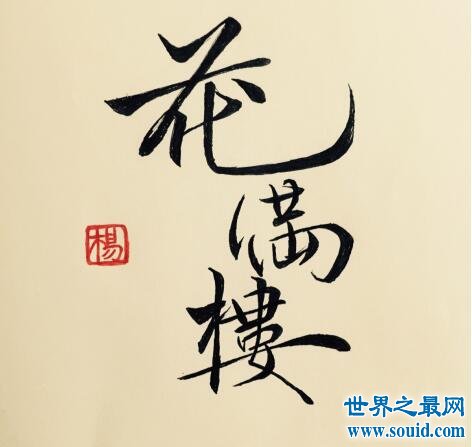 花
满
樓
楊
世界之最网
www.souid.com